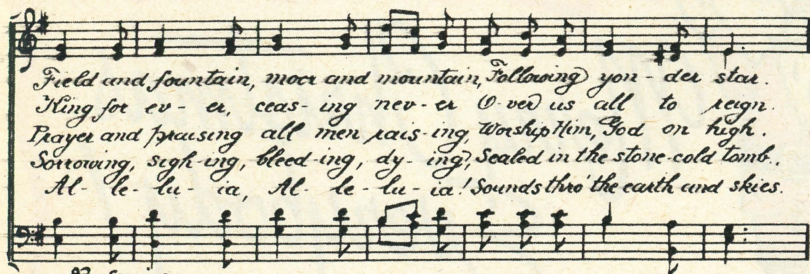 Field and fountain, moor and mountain, Following yon - der star.
King for ev - er, ceas - ing nev - er O - ver us all to reign.
Prayer and praising all men rais - ing, Worship Him, God on high.
Sorrowing, sigh - ing, bleed - ing, dy - ing, Sealed in the stone-cold tomb.
Al - le - lu - ia, Al - le - lu - ia! Sounds thro' the earth and skies.